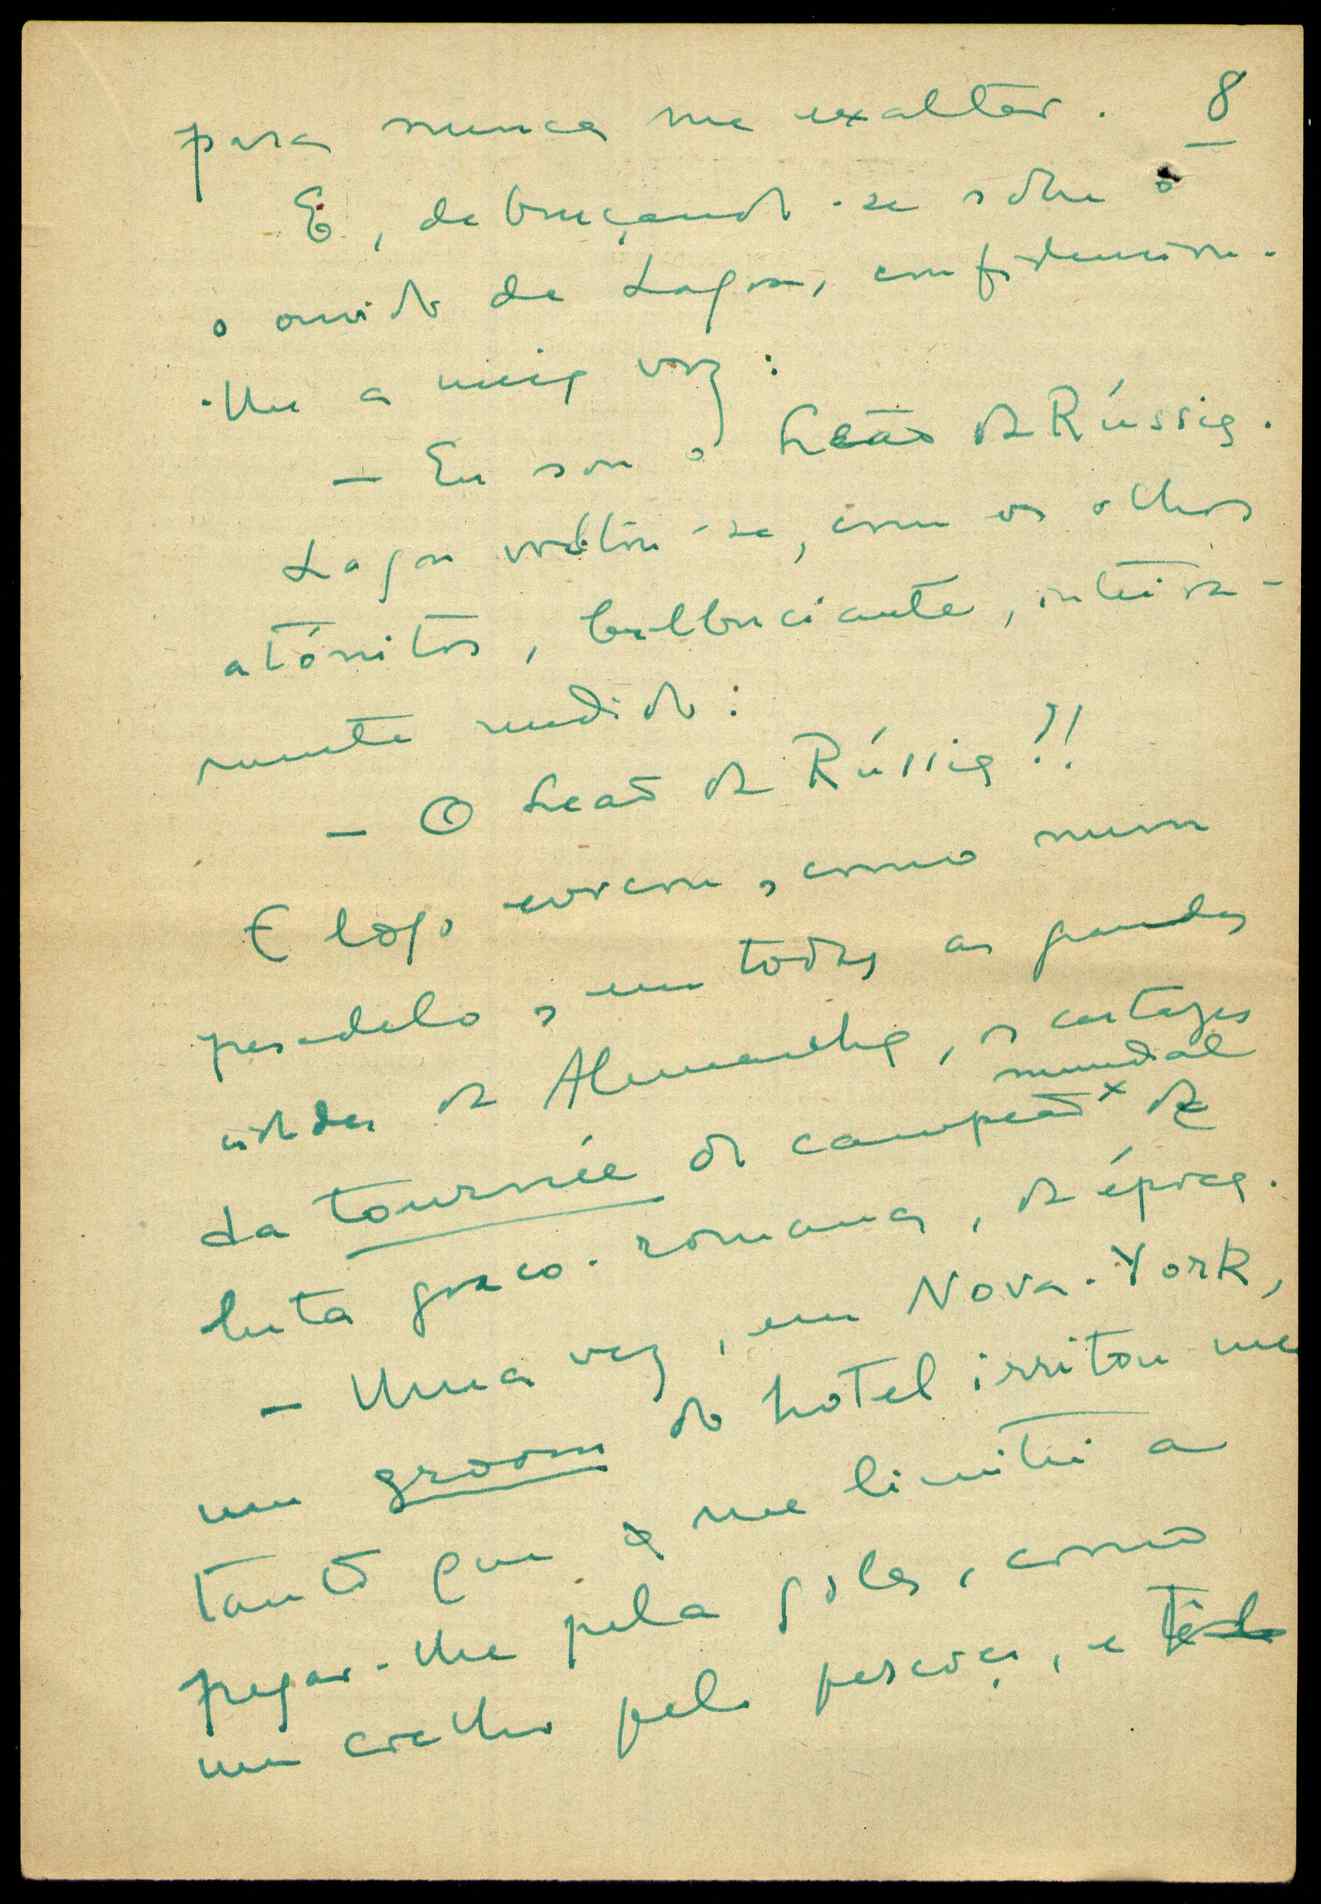 8
para nunca me exaltar.
E, debruçando-se sôbre o
o ouvido de Lagoa, confidenciou-
-lhe a meia voz:
— Eu sou o Leão da Rússia.
Lagoa voltou-se, com os olhos
atónitos, balbuciante, inteira-
mente rendido:
— O Leão da Rússia?!
E logo evocou, como num
pesadelo, em todas as grandes
cidades da Alemanha, os cartazes
mundial
da tournée do campeão x de
luta greco-romana, da época.
— Uma vez, em Nova-York,
um groom do hotel irritou-me
tanto que me limitei a
pegar-lhe pela gola, como
um coelho pelo pescoço, e